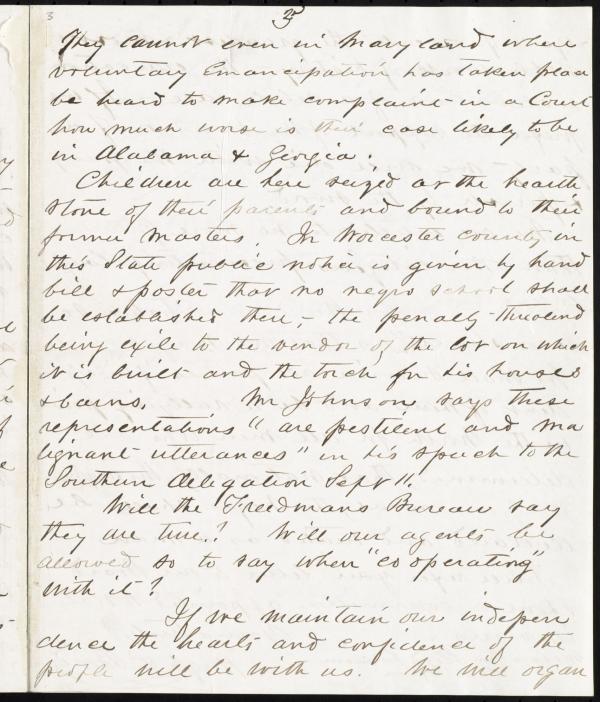 3
3
They cannot even in Maryland where
voluntary Emancipation has taken place
be heard to make complaint in a Court
how much worse is their case likely to be
in Alabama & Georgia.
Children are here seized at the hearth
stone of their parents and bound to their
former masters. In Worcester county in
this State public notice is given by hand
bill & poster that no negro school shall
be established there, - the penalty threatened
being exile to the vendor of the lot on which
it is built and the torch for his houses
& barns. Mr Johnson says these
representations "are pestilent and ma
lignant utterances" in his speech to the
Southern delegation Sept 11.
Will the Freedmans Bureau say
they are true? Will our agents be
allowed so to say when "cooperating"
with it?
If we maintain our indepen
dence the hearts and confidence of the
people will be with us. We will organ